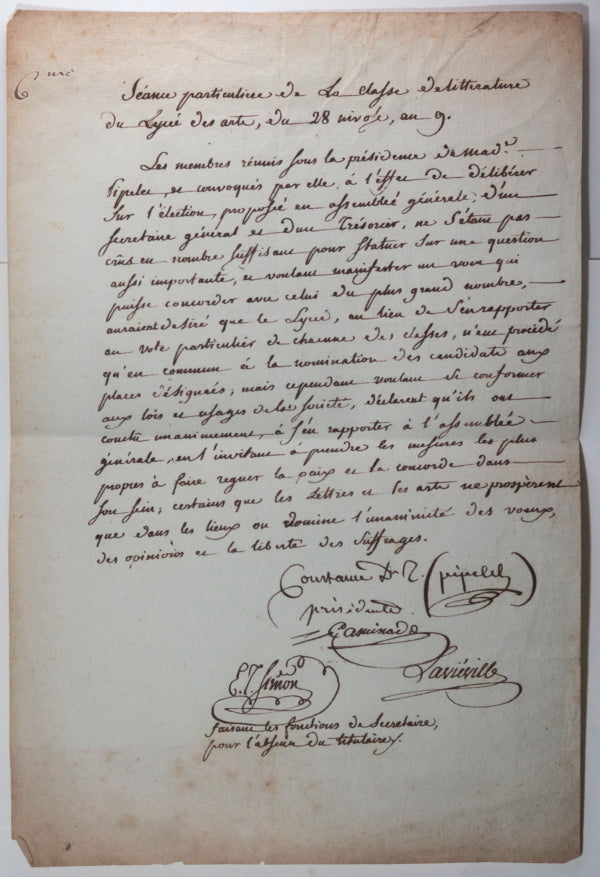 6.me
Séance particuliere de La classe de litterature
du Lycée des arts, du 28 nivose, an 9.
Les membres réunis sous la présidence de Mad.e
Pipelet, et convoqués par elle, à l'effet de délibérer
sur l'élection, proposée en assembleé générale, d'un
secretaire général et d'un Trésorier, ne s'étant pas
crus en nombre suffisant pour statuer sur une question
aussi importante, et voulant manifester un voeu qui
puisse concorder avec celui du plus grand nombre,
auraient desiré que le Lycée, au lieu de s'en rapporter
au vote particulier de chacune des classes, n'eut procédé
qu'en commun à la nomination des candidats aux
places désignées; mais cependant voulant se conformer
aux lois et usages de la societé, déclarent qu'ils ont
conclu unanimement, à s'en rapporter à l'assemblée
générale, en l'invitant à prendre les mesures les plus
propres à faire regner la paix et la concorde dans
son sein; certains que les Lettres et les arts ne prospèrent
que dans les lieux ou domine l'unanimité des voeux,
des opinions et la liberté des suffrages.
Constance D. T. (pipelet)
présidente.
Caminade
Laviéville
E. T. Simon
faisant les fonctions de Secretaire,
pour l'absence du titulaire.